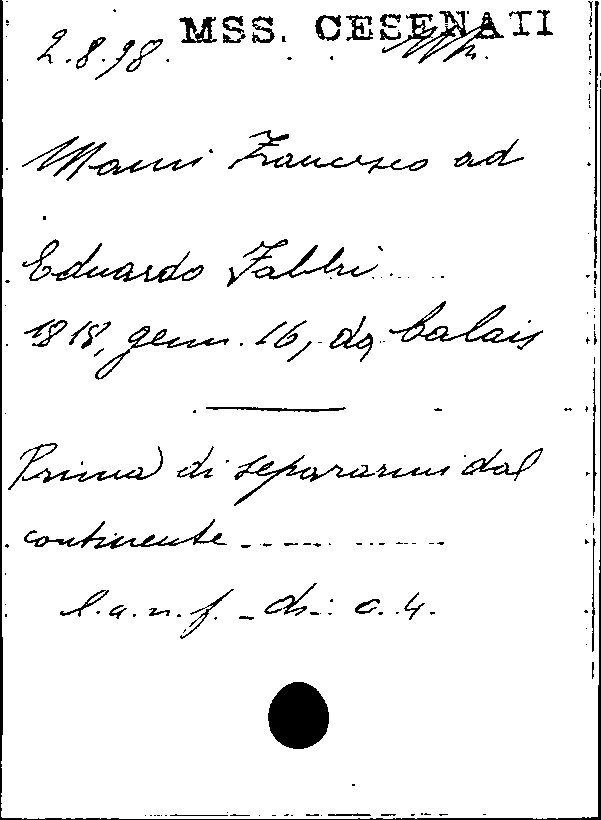 MSS. CESENATI
2.8.98.
Mami Francesco ad
Eduardo Fabbri.....
1818, genn. 16, da Calais
Prima di separarmi dal
continente ..........
l.a.n.f. - di: c. 4.